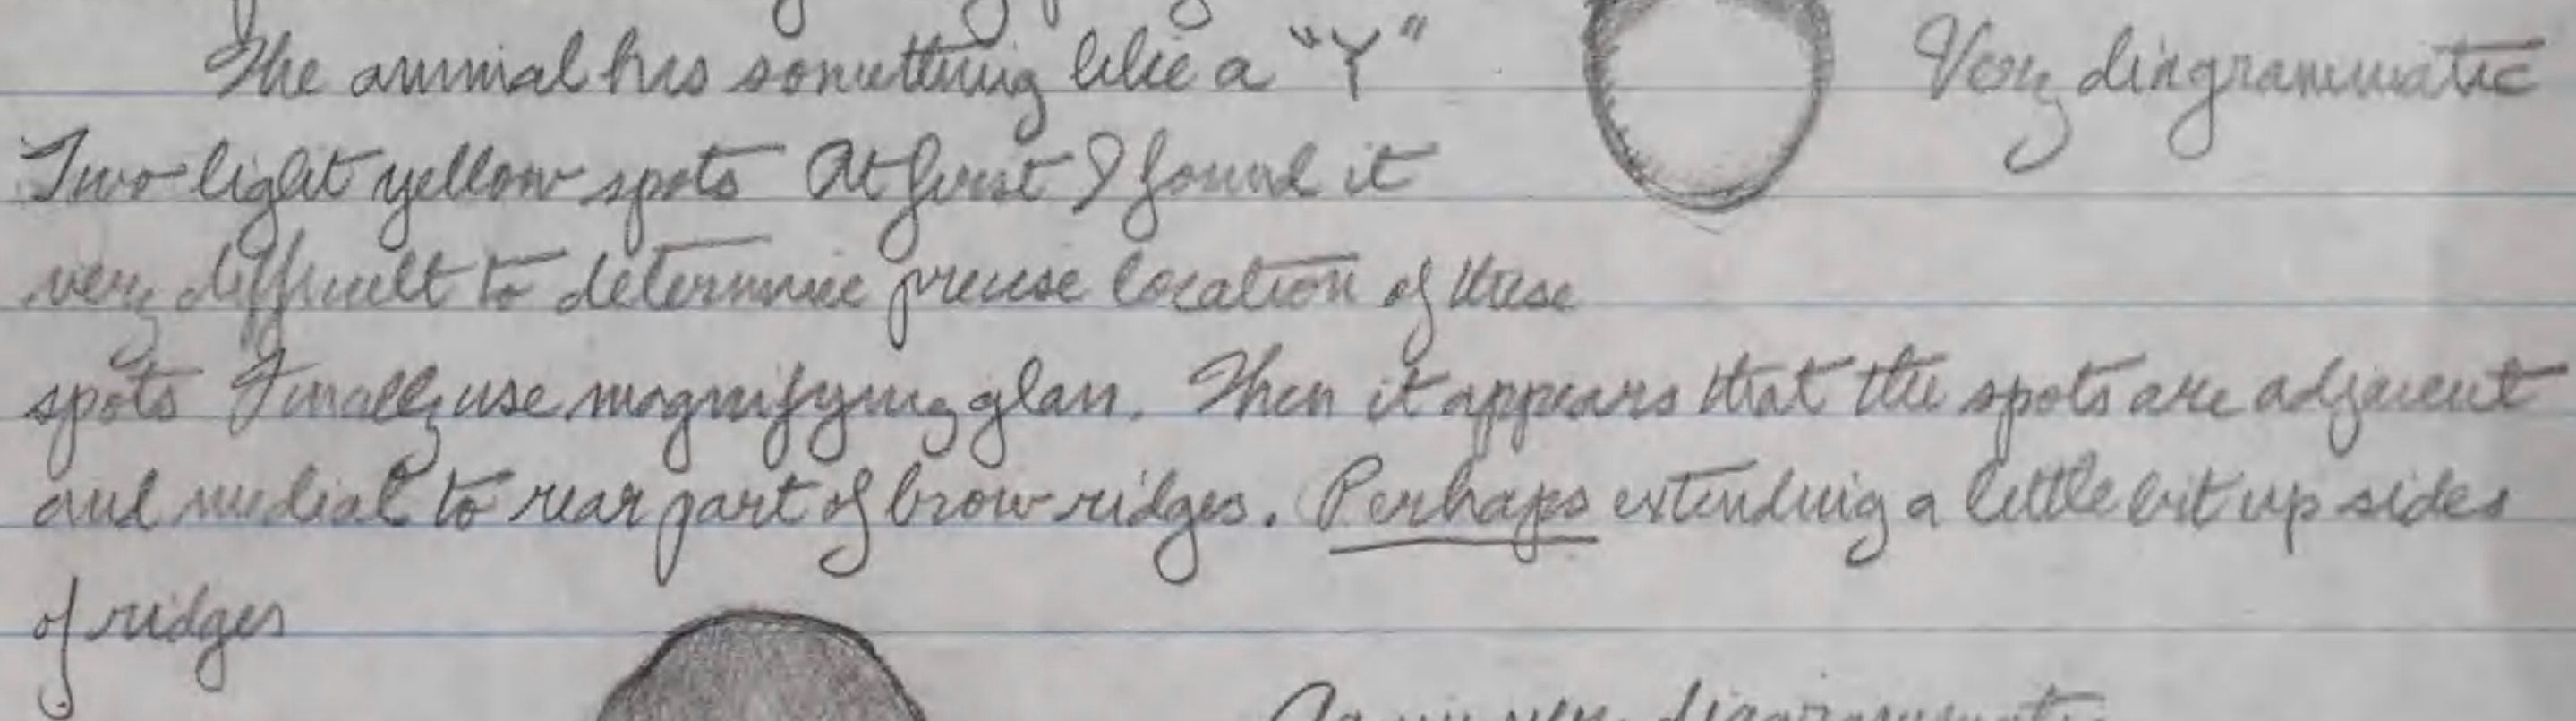 The animal has something like a "Y"
Very diagrammatic
Two light yellow spots At first I found it
very difficult to determine precise location of these
spots Finally use magnifying glass. Then it appears that the spots are adjacent
and medial to rear part of brow ridges. Perhaps extending a little bit up sides
of ridges
Again very diagrammatic